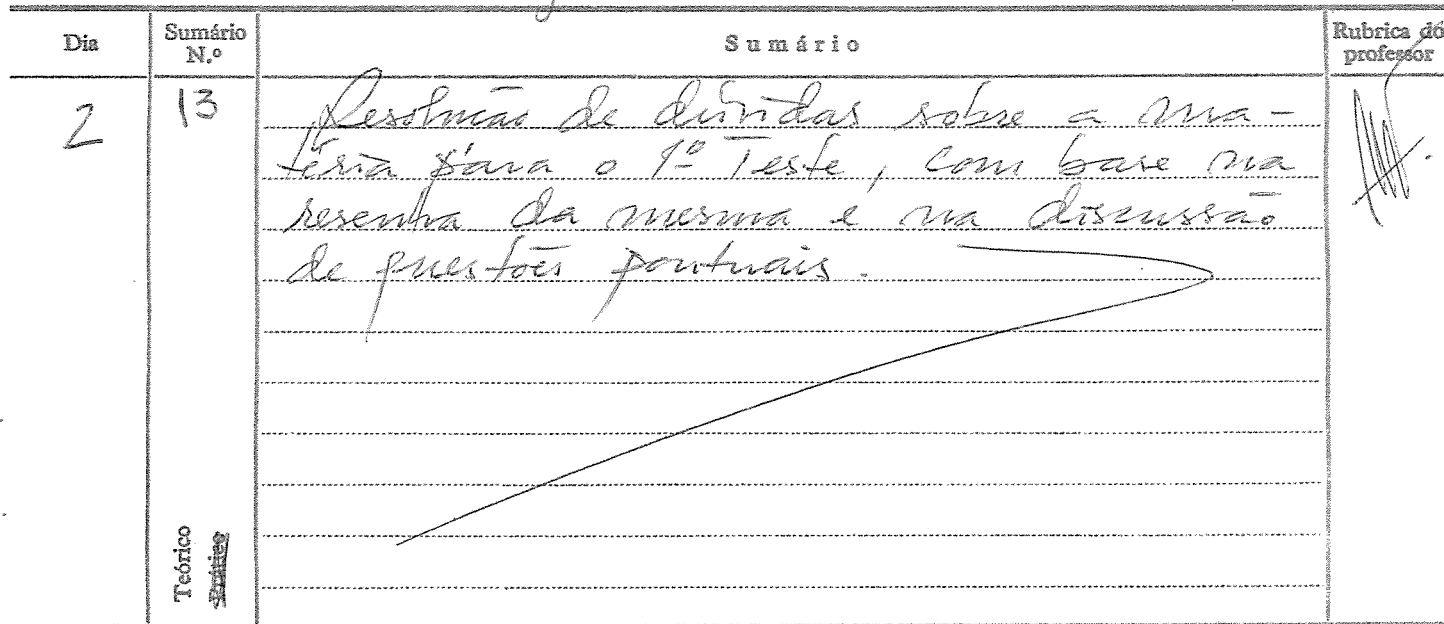 Dia
Sumário
N.º
Sumário
Rubrica do
professor
2
13
Resolução de dúvidas sobre a ma-
téria para o 1º Teste, com base na
resenha da mesma e na discussão
de questões pontuais.
Teórico
Prático